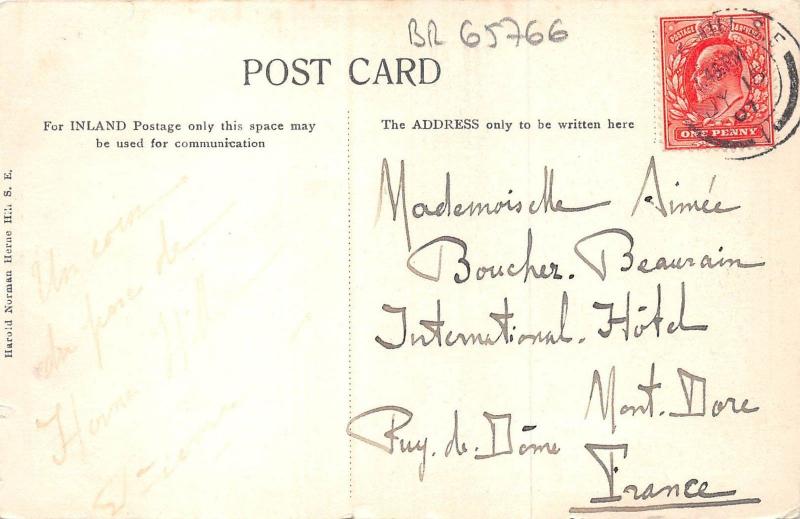 BR 65766
POST CARD
For INLAND Postage only this space may
be used for communication
The ADDRESS only to be written here
POSTAGE REVENUE
ONE PENNY
JY 15
07
Harold Norman Herne Hill S. E.
Un coin
du parc de
Herne Hill
Mademoiselle Aimée
Boucher. Beaurain
International. Hôtel
Mont. Dore
Puy. de. Dôme
France